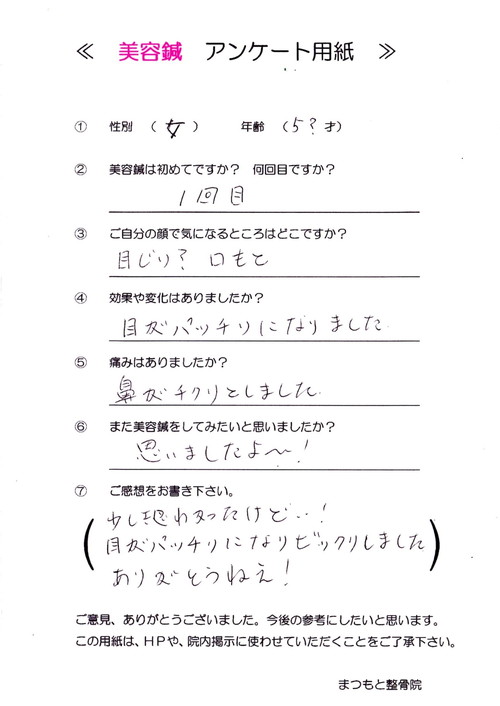 ≪ 美容鍼 アンケート用紙 ≫
① 性別 （ 女 ） 年齢 （ 5? 才）
② 美容鍼は初めてですか？ 何回目ですか？
1回目
③ ご自分の顔で気になるところはどこですか？
目じり? 口もと
④ 効果や変化はありましたか？
目がパッチリになりました
⑤ 痛みはありましたか？
鼻がチクリとしました
⑥ また美容鍼をしてみたいと思いましたか？
思いましたよ〜!
⑦ ご感想をお書き下さい。
少し恐わかったけど…!
目がパッチリになりビックリしました
ありがとうねえ!
ご意見、ありがとうございました。今後の参考にしたいと思います。
この用紙は、ＨＰや、院内掲示に使わせていただくことをご了承下さい。
まつもと整骨院